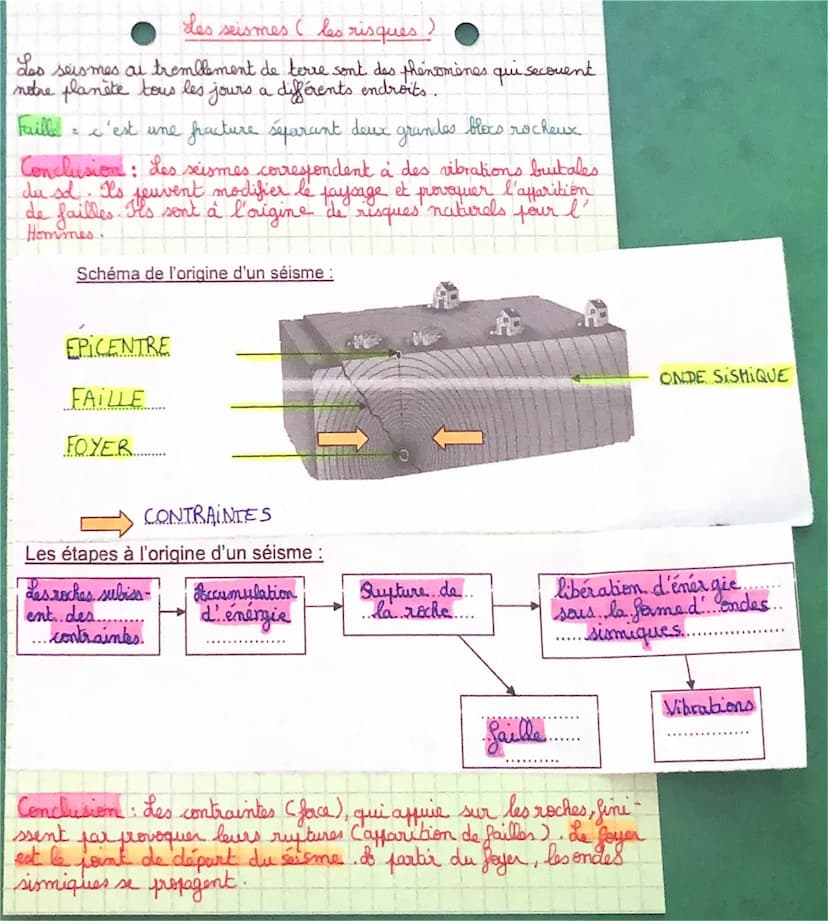 Les seismes ( les risques )
Les seismes ou tremblement de terre sont des phénomènes qui secouent
notre planète tous les jours a différents endroits.
Faille = c'est une fracture séparant deux grandes blocs rocheux
Conclusion : Les séismes correspondent à des vibrations brutales
du sol. Ils peuvent modifier le paysage et provoquer l'apparition
de failles. Ils sont à l'origine de risques naturels pour l'
Hommes.
Schéma de l'origine d'un séisme :
EPICENTRE
ONDE SISMIQUE
FAILLE
FOYER
CONTRAINTES
Les étapes à l'origine d'un séisme :
Les roches subiss-
ent des
contraintes
Accumulation
d'énérgie
Rupture de
la roche
libération d'énérgie
sous la forme d'ondes
sismiques.
faille
Vibrations
Conclusion : Les contraintes (force), qui appuie sur les roches, fini-
ssent par provoquer leurs ruptures (apparition de failles). Le foyer
est le point de départ du séisme. A partir du foyer, les ondes
sismiques se propagent.